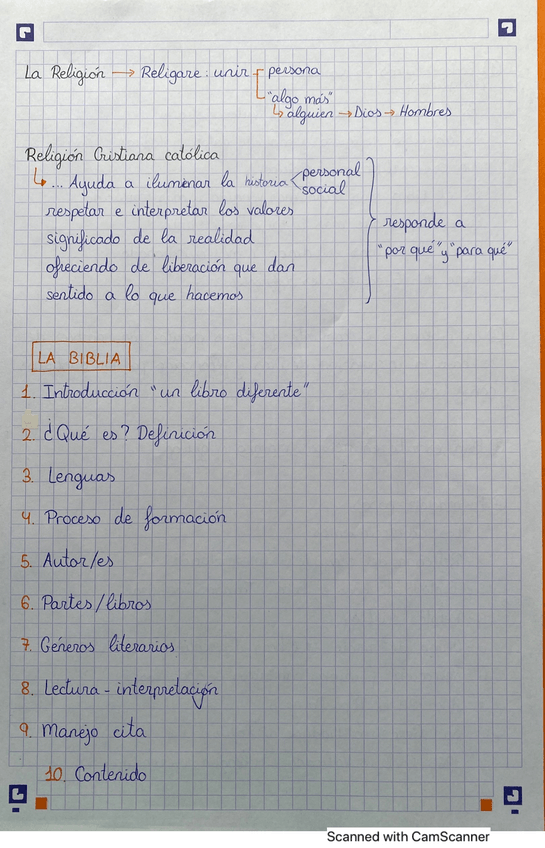 La Religión → Religare: unir persona
"algo más"
↳ alguien → Dios → Hombres
Religión Cristiana católica
↳ ... Ayuda a iluminar la historia personal
social
respetar e interpretar los valores
significado de la realidad
ofreciendo de liberación que dan
sentido a lo que hacemos
responde a
"por qué" y "para qué"
LA BIBLIA
1. Introducción "un libro diferente"
2. ¿Qué es? Definición
3. Lenguas
4. Proceso de formación
5. Autor/es
6. Partes/libros
7. Géneros literarios
8. Lectura - interpretación
9. Manejo cita
10. Contenido
Scanned with CamScanner